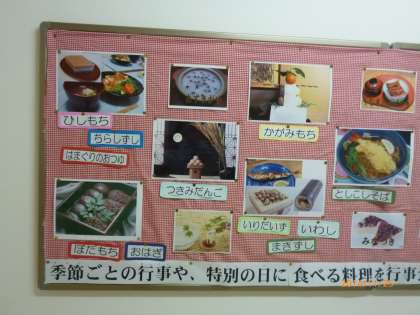 ひしもち
ちらしずし
はまぐりのおつゆ
つきみだんご
かがみもち
としこしそば
いりだいず
いわし
まきずし
ぼたもち
おはぎ
みなづき
季節ごとの行事や、特別の日に 食べる料理を行事